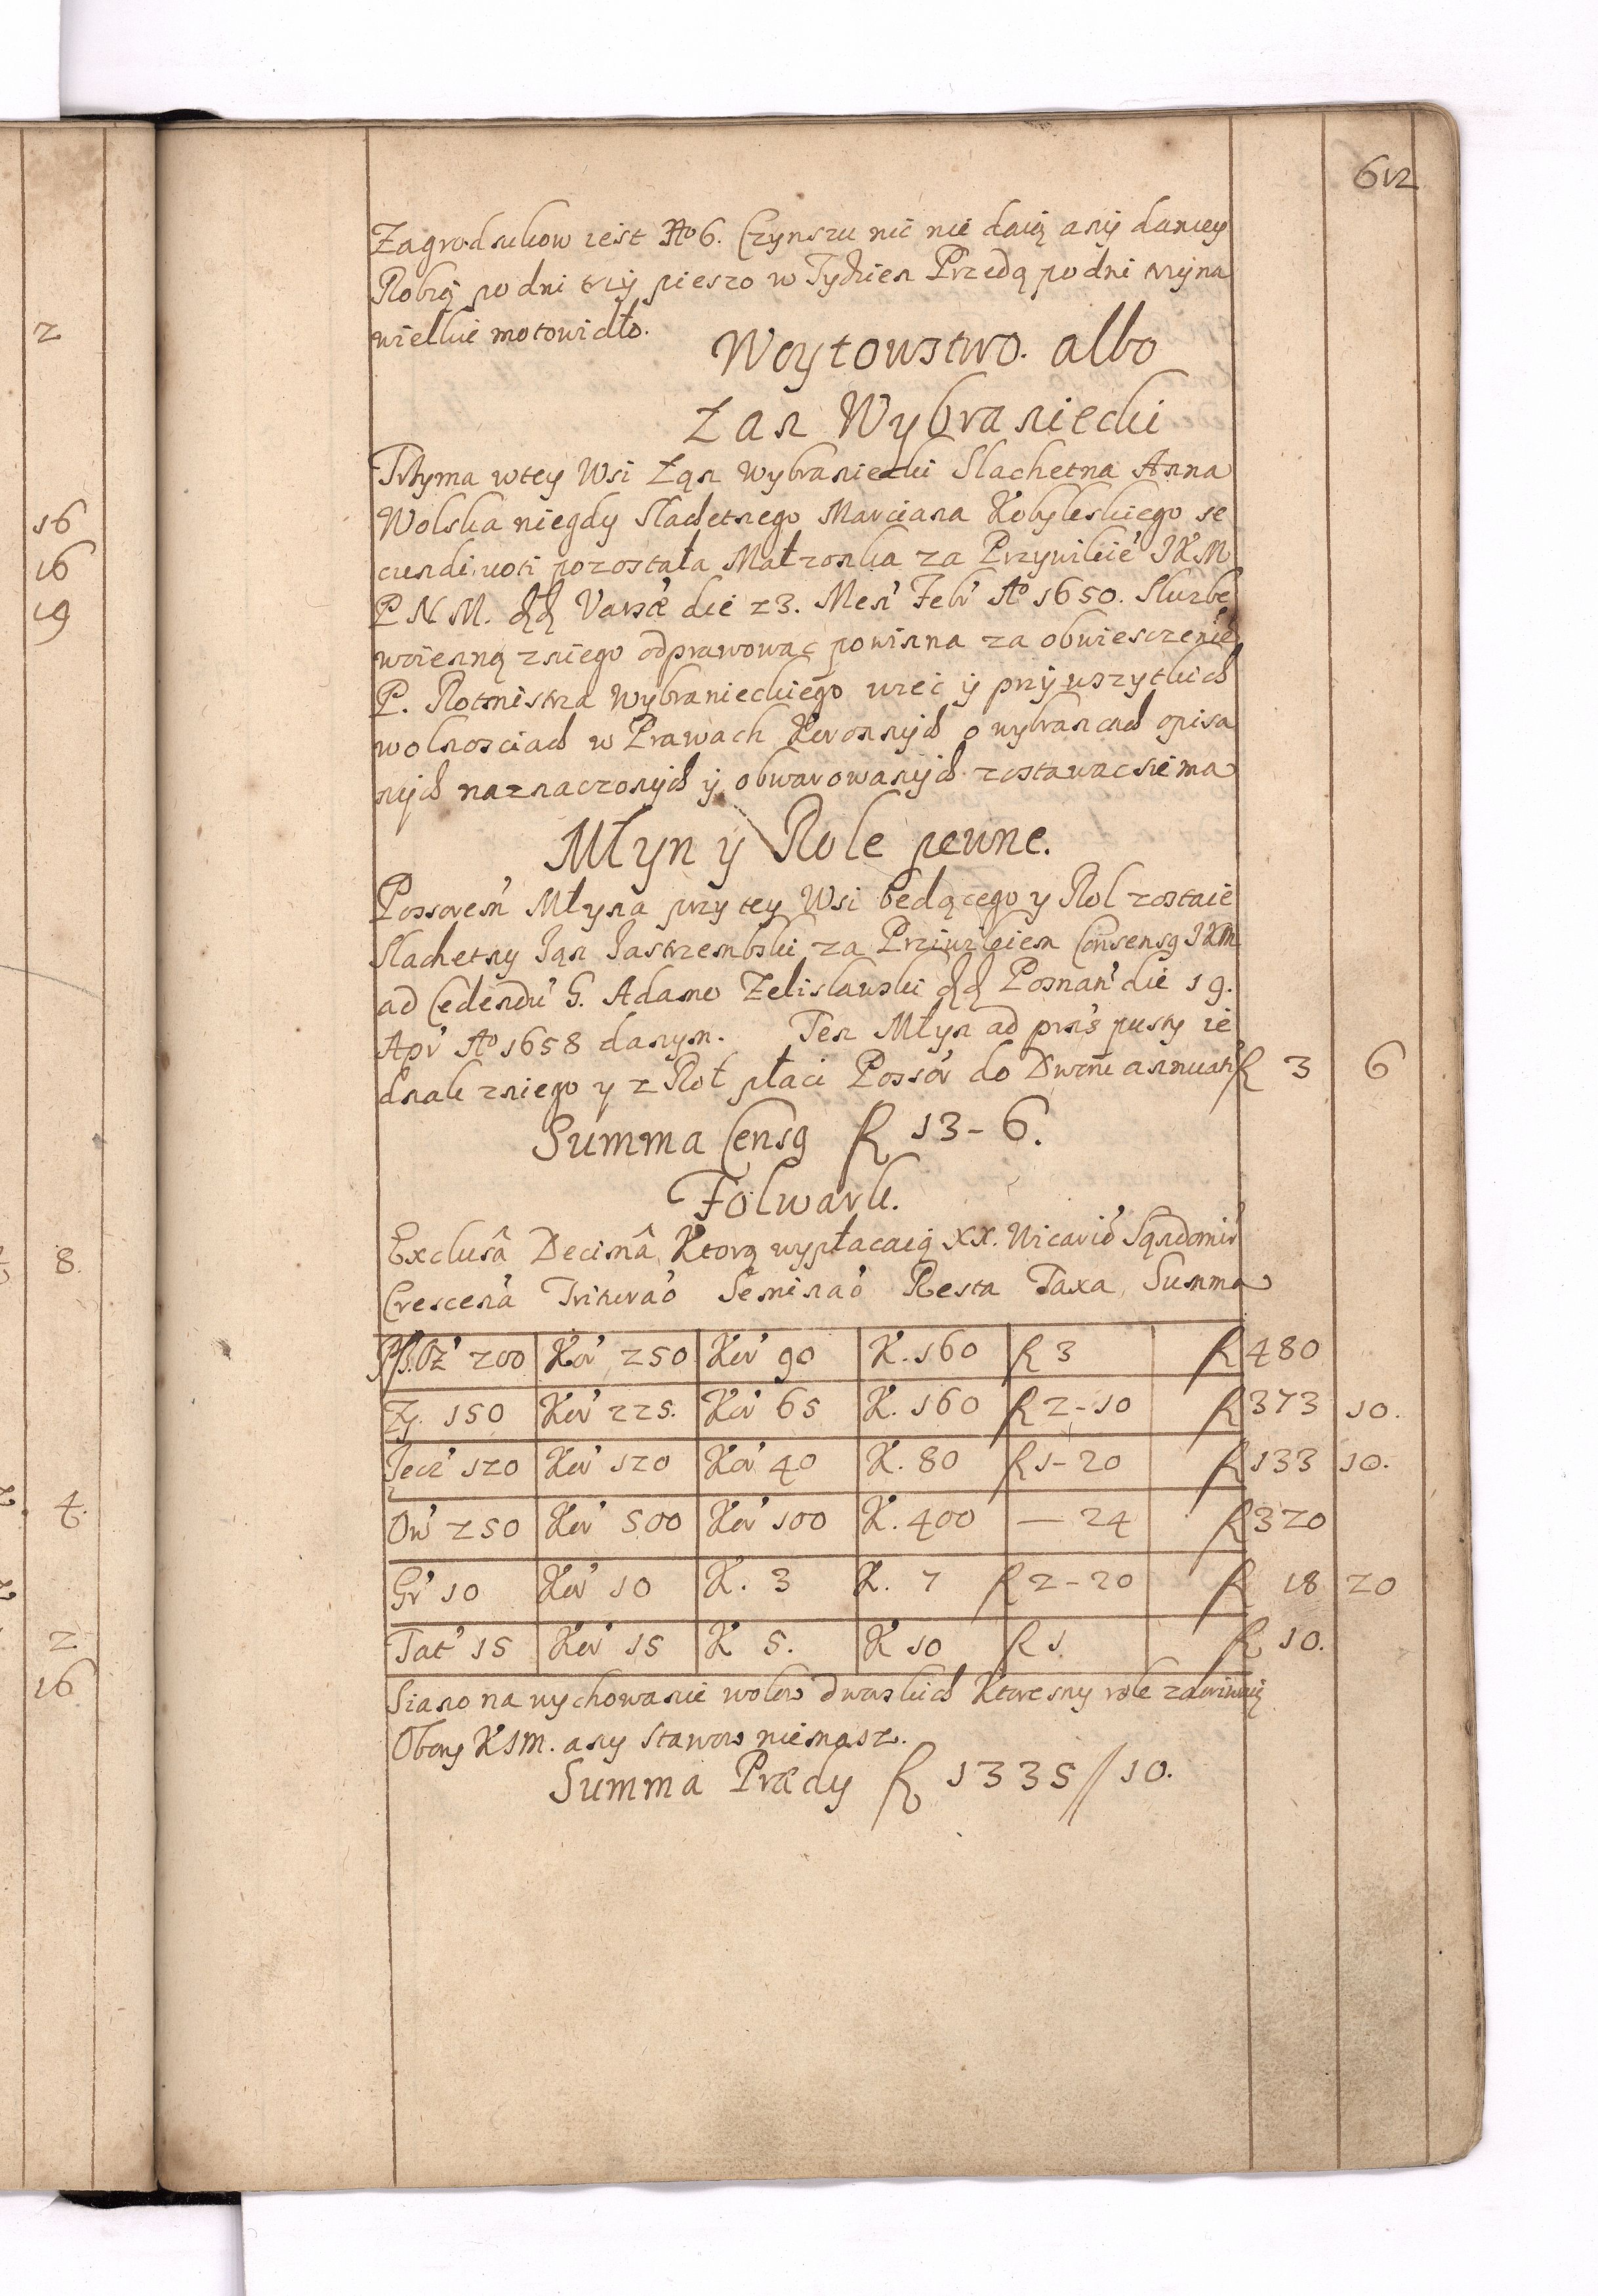 612
Zagrodnikow iest No 6. Czynszu nic nie daią any daniey
Robią po dni trzy pieszo w Tydzien Przędą po dni trzy na
wielkie motowidło.
Woytowstwo. albo
Łan Wybraniecki
Trzyma w tey Wsi Łan Wybraniecki Slachetna Anna
Wolska niegdy Slachetnego Marciana Kobyleskiego se
cundi voti pozostała Małzonka za Przywileie' JKM
P N M. dd Varsae' die 23. Men' Febr' Ao 1650. Sluzbę
woienną z niego odprawowac powinna za obwiesczenie
P. Rotmistrza Wybranieckiego wzeć y przy wszytkich
wolnosciach w Prawach Koronnych o wybrancach opisa
nych naznaczonych y obwarowanych zostawac się ma
Młyn y Role pewne.
Possorem' Młyna przy tey Wsi będącego y Rol zostaie
Slachetny Jan Jastrzembski za Prziwileiem Consensq JKM
ad Cedendu' G. Adamo Zelislawski dd Posnan' die 19.
Apr' Ao 1658 danym. Ten Młyn ad pns' pusty ie
dnak z niego y z Rol płaci Possor' do Dworu annuati' f 3 6
Summa Censq f 13 - 6.
Folwark.
Exclusâ Decimâ Ktorą wypłacaią XX. Wicario' Sandomir'
Crescen'a Triturao' Seminao' Resta Taxa Summa
Psz. Oz' 200 Kor' 250 Kor' 90 K. 160 f 3 f 480
Zy. 150 Kor' 225. Kor' 65 K. 160 f 2 - 10 f 373 10.
Jecz' 120 Kor' 120 Kor' 40 K. 80 f 1 - 20 f 133 10.
Ow' 250 Kor' 500 Kor' 100 K. 400 — 24 f 320
Gr' 10 Kor' 10 K. 3 K. 7 f 2 - 20 f 18 20
Tat' 15 Kor' 15 K 5. K 10 f 1. f 10.
Siano na wychowanie wolow dworskich
Obory KJM. any Stawow niemasz.
Summa Prædy f 1335 // 10.
2
16
16
19
8.
4.
2
16